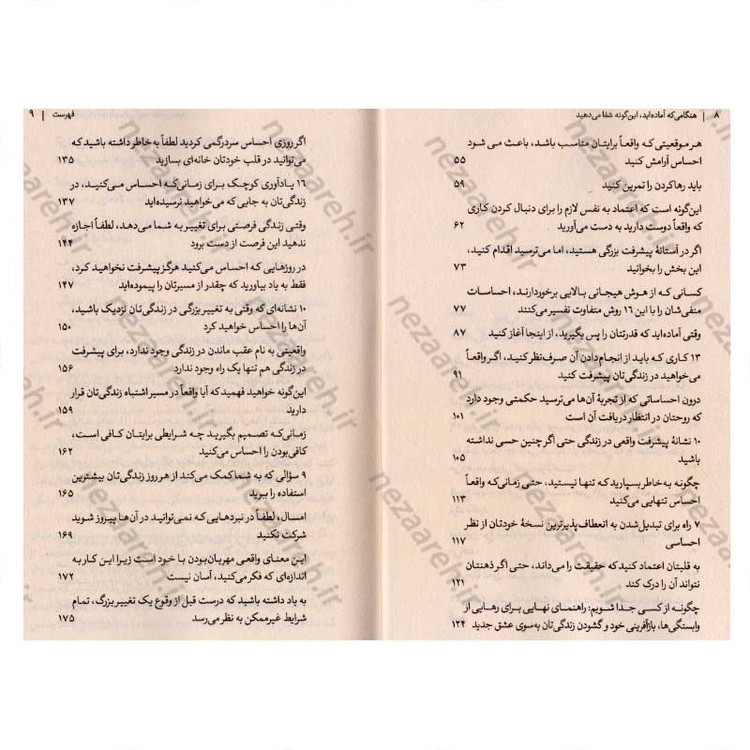 ۸ | هنگامی‌که آماده‌اید، این‌گونه شفا می‌دهید
هر موقعیتی که واقعاً برایتان مناسب باشد، باعث می شود
احساس آرامش کنید ۵۵
باید رهاکردن را تمرین کنید ۵۹
این‌گونه است که اعتماد به نفس لازم را برای دنبال کردن کاری
که واقعاً دوست دارید به دست می‌آورید ۶۲
اگر در آستانهٔ پیشرفت بزرگی هستید، اما می‌ترسید اقدام کنید،
این بخش را بخوانید ۷۳
کسانی که از هوش هیجانی بالایی برخوردارند، احساسات
منفی‌شان را با این ۱۶ روش متفاوت تفسیر می‌کنند ۷۷
وقتی آماده‌اید که قدرتتان را پس بگیرید، از اینجا آغاز کنید ۸۷
۱۳ کاری که باید از انجام‌دادن آن صرف‌نظر کنید، اگر واقعاً
می‌خواهید در زندگی‌تان پیشرفت کنید ۹۱
درون احساساتی که از تجربهٔ آن‌ها می‌ترسید حکمتی وجود دارد
که روحتان در انتظار دریافت آن است ۱۰۱
۱۰ نشانهٔ پیشرفت واقعی در زندگی حتی اگر چنین حسی نداشته
باشید ۱۰۵
چگونه به خاطر بسپارید که تنها نیستید، حتی زمانی‌که واقعاً
احساس تنهایی می‌کنید ۱۱۳
۷ راه برای تبدیل‌شدن به انعطاف‌پذیرترین نسخهٔ خودتان از نظر
احساسی ۱۱۷
به قلبتان اعتماد کنید که حقیقت را می‌داند، حتی اگر ذهنتان
نتواند آن را درک کند ۱۲۱
چگونه از کسی جدا شویم: راهنمای نهایی برای رهایی از
وابستگی‌ها، بازآفرینی خود و گشودن زندگی‌تان به‌سوی عشق جدید ۱۲۴
فهرست | ۹
اگر روزی احساس سردرگمی کردید لطفاً به خاطر داشته باشید که
می‌توانید در قلب خودتان خانه‌ای بسازید ۱۳۵
۱۶ یادآوری کوچک برای زمانی‌که احساس می‌کنید، در
زندگی‌تان به جایی که می‌خواهید نرسیده‌اید ۱۳۷
وقتی زندگی فرصتی برای تغییر به شما می‌دهد، لطفاً اجازه
ندهید این فرصت از دست برود ۱۴۴
در روزهایی که احساس می‌کنید هرگز پیشرفت نخواهید کرد،
فقط به یاد بیاورید که چقدر از مسیرتان را پیموده‌اید ۱۴۷
۱۰ نشانه‌ای که وقتی به تغییر بزرگی در زندگی‌تان نزدیک باشید،
آن‌ها را احساس خواهید کرد ۱۵۰
واقعیتی به نام عقب ماندن در زندگی وجود ندارد، برای پیشرفت
در زندگی هم تنها یک راه وجود ندارد ۱۵۶
این‌گونه خواهید فهمید که آیا واقعاً در مسیر اشتباه زندگی‌تان قرار
دارید ۱۵۹
زمانی‌که تصمیم بگیرید چه شرایطی برایتان کافی است،
کافی‌بودن را احساس می‌کنید ۱۶۲
۹ سؤالی که به شما کمک می‌کند از هر روز زندگی‌تان بیشترین
استفاده را ببرید ۱۶۵
امسال، لطفاً در نبردهایی که نمی‌توانید در آن‌ها پیروز شوید
شرکت نکنید ۱۶۹
این معنای واقعی مهربان‌بودن با خود است زیرا این کار به
اندازه‌ای که فکر می‌کنید، آسان نیست ۱۷۲
به یاد داشته باشید که درست قبل از وقوع یک تغییر بزرگ، تمام
شرایط غیرممکن به نظر می‌رسد ۱۷۵
nezaareh.ir